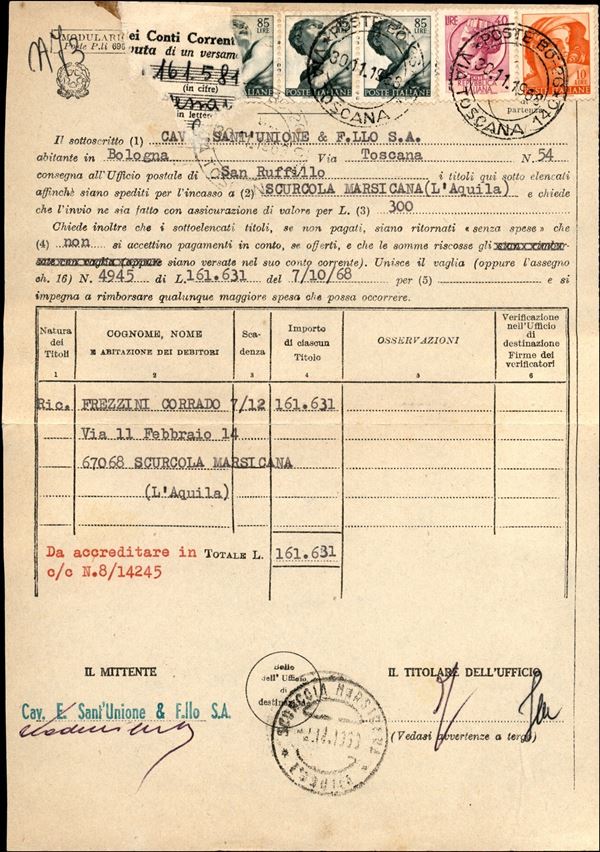 MODULARIO
ei Conti Corrent
uta di un versame
161.581
(in cifre)
(in lettere
A73
85
LIRE
POSTE ITALIANE
85
LIRE
POSTE ITALIANE
LIRE 40
10
LIRE
POSTE ITALIANE
30.11.1968
TOSCANA
30.11.1968
VIA TOSCANA
partenza
Il sottoscritto (1) CAV. SANT'UNIONE & F.LLO S.A.
abitante in Bologna Via Toscana N. 54
consegna all'Ufficio postale di San Ruffillo i titoli qui sotto elencati
affinchè siano spediti per l'incasso a (2) SCURCOLA MARSICANA(L'Aquila) e chiede
che l'invio ne sia fatto con assicurazione di valore per L. (3) 300
Chiede inoltre che i sottoelencati titoli, se non pagati, siano ritornati «senza spese» che
(4) non si accettino pagamenti in conto, se offerti, e che le somme riscosse gli
siano versate nel suo conto corrente). Unisce il vaglia (oppure l'assegno
ch. 16) N. 4945 di L. 161.631 del 7/10/68 per (5) e si
impegna a rimborsare qualunque maggiore spesa che possa occorrere.
Natura dei Titoli
COGNOME, NOME E ABITAZIONE DEI DEBITORI
Scadenza
Importo di ciascun Titolo
OSSERVAZIONI
Verificazione nell'Ufficio di destinazione Firme dei verificatori
1 2 3 4 5 6
Ric. FREZZINI CORRADO 7/12 161.631
Via 11 Febbraio 14
67068 SCURCOLA MARSICANA
(L'Aquila)
Da accreditare in TOTALE L. 161.631
c/c N.8/14245
IL MITTENTE
Bollo
dell'Ufficio
di
destinazione
IL TITOLARE DELL'UFFICIO
Cav. E. Sant'Unione & F.llo S.A.
(Vedasi avvertenze a tergo)